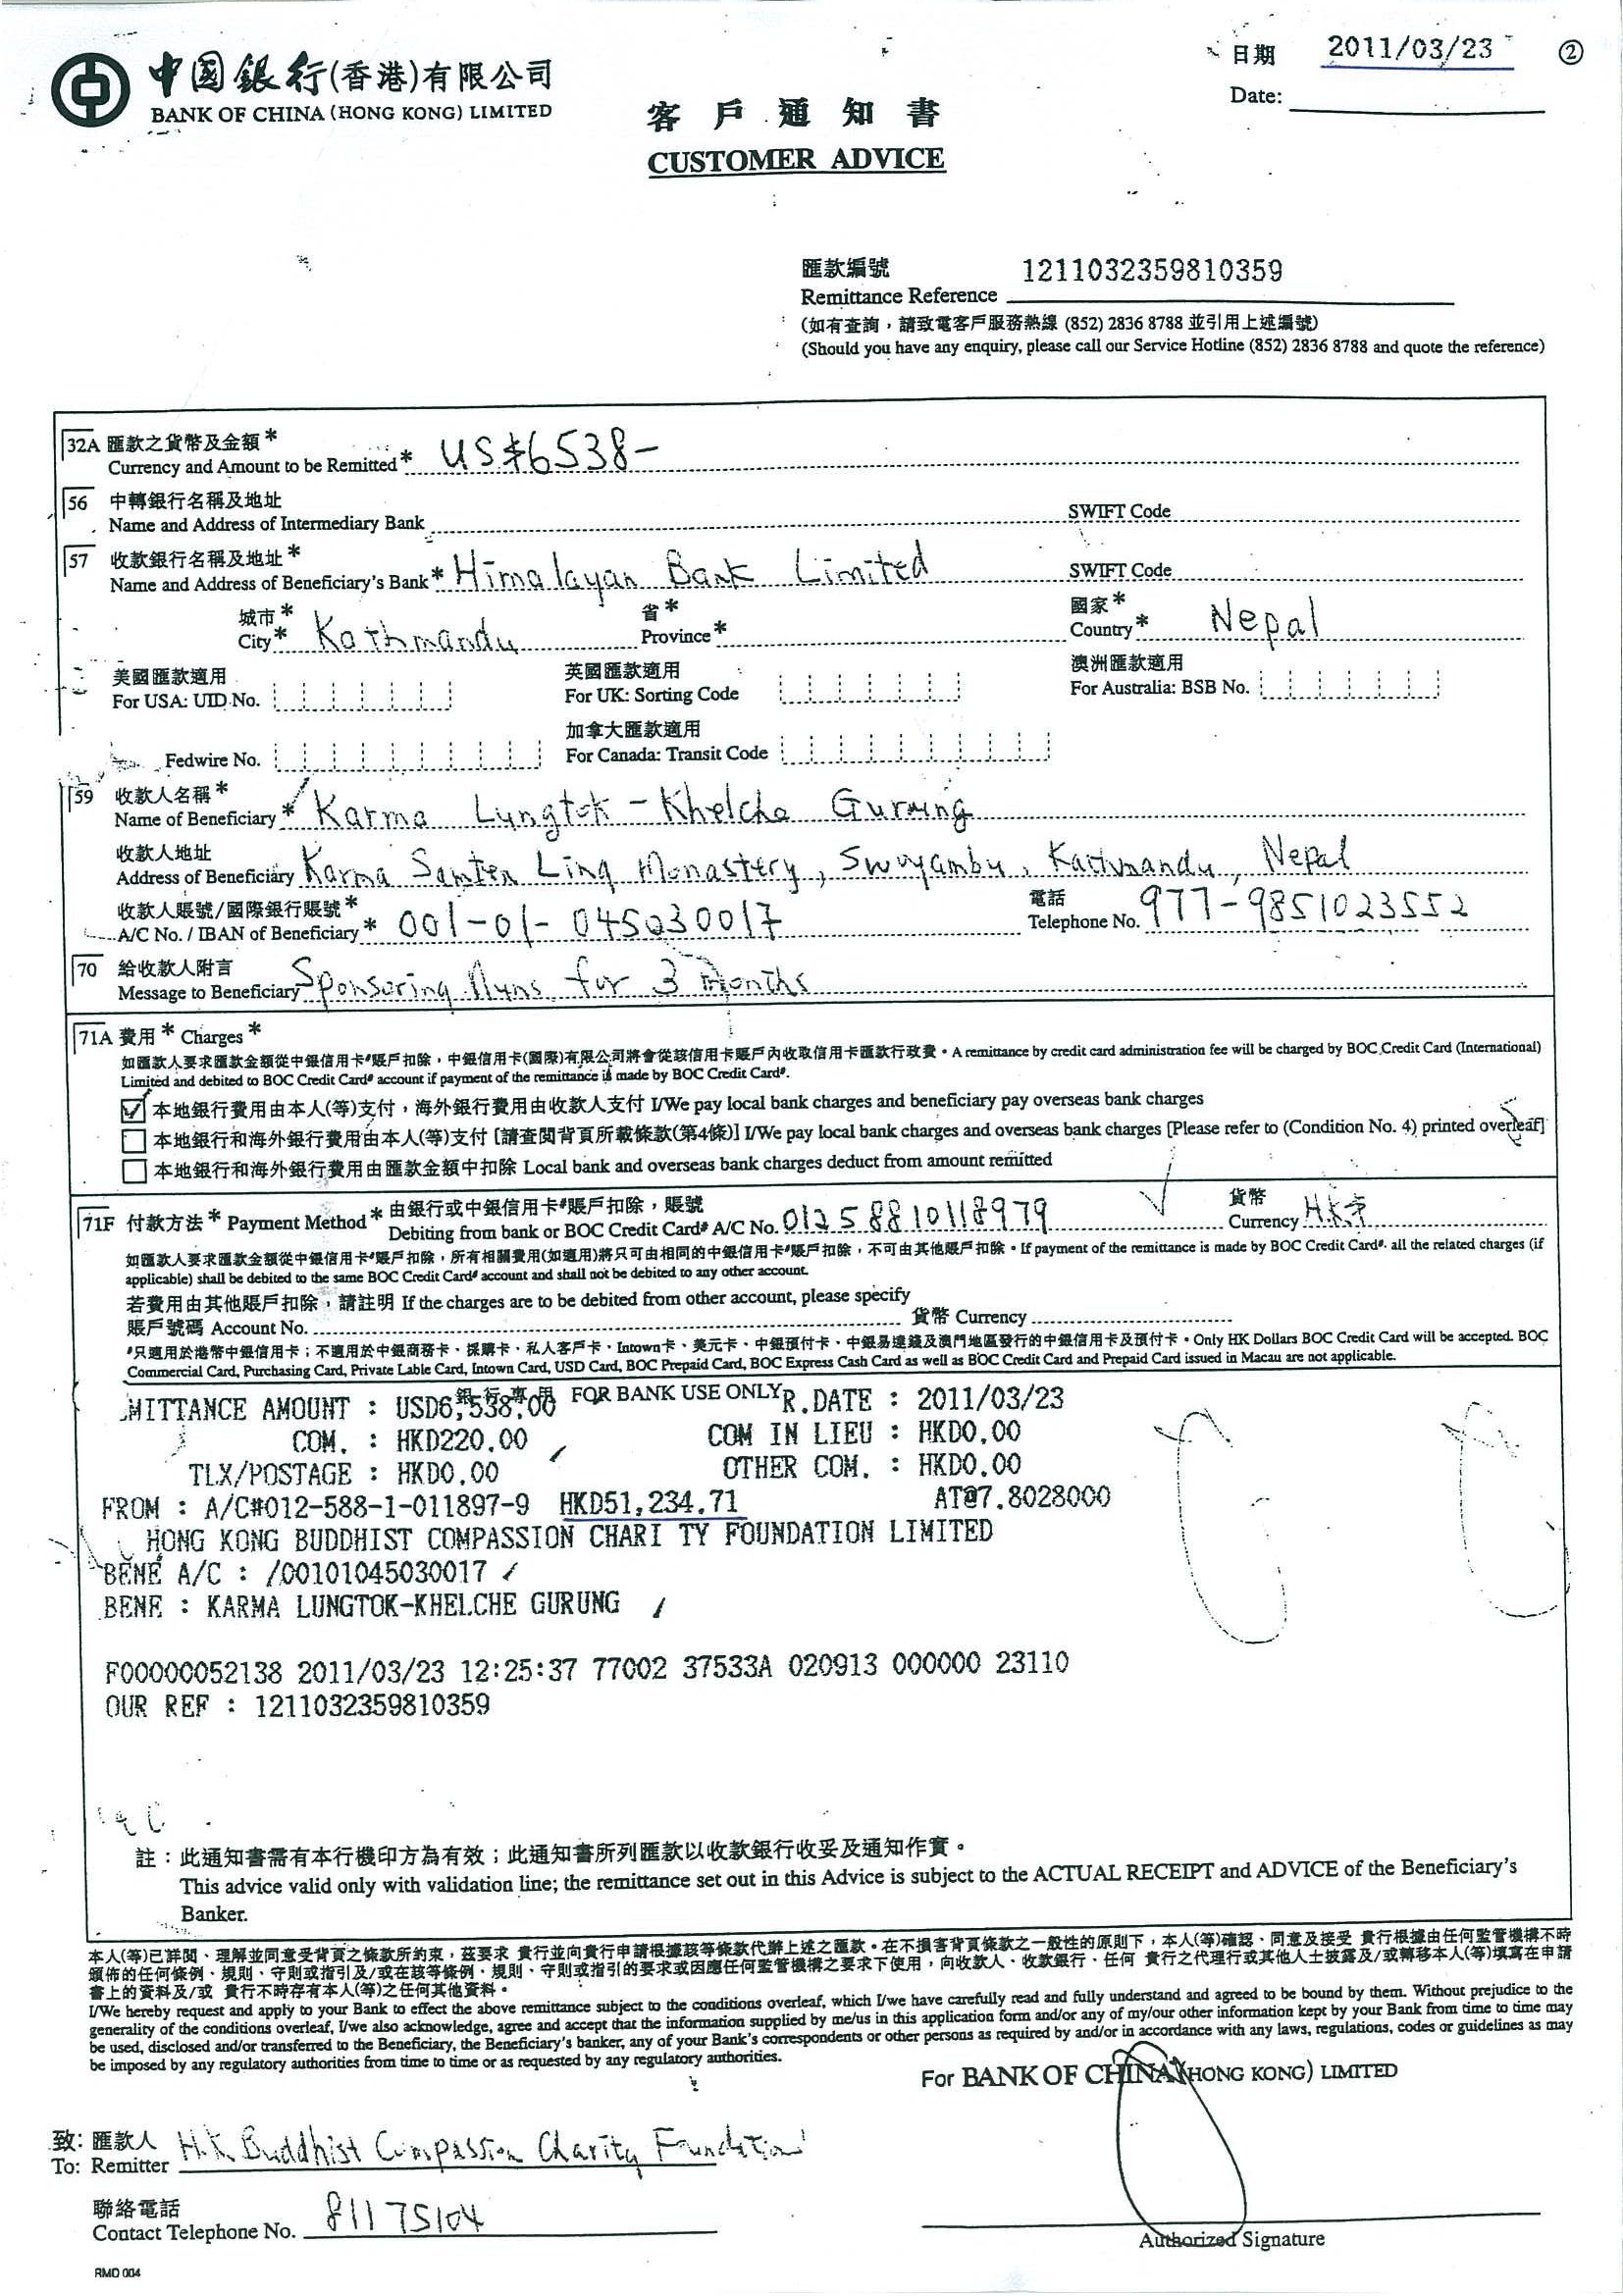 中國銀行(香港)有限公司
BANK OF CHINA (HONG KONG) LIMITED
日期 2011/03/23 ②
Date:
客戶通知書
CUSTOMER ADVICE
匯款編號 1211032359810359
Remittance Reference
(如有查詢，請致電客戶服務熱線 (852) 2836 8788 並引用上述編號)
(Should you have any enquiry, please call our Service Hotline (852) 2836 8788 and quote the reference)
32A 匯款之貨幣及金額*
Currency and Amount to be Remitted* US$6538-
56 中轉銀行名稱及地址
Name and Address of Intermediary Bank SWIFT Code
57 收款銀行名稱及地址*
Name and Address of Beneficiary's Bank* Himalayan Bank Limited SWIFT Code
城市* 省* 國家*
City* Kathmandu Province* Country* Nepal
美國匯款適用 英國匯款適用 澳洲匯款適用
For USA: UID No. For UK: Sorting Code For Australia: BSB No.
加拿大匯款適用
Fedwire No. For Canada: Transit Code
59 收款人名稱*
Name of Beneficiary* Karma Lungtok-Khelche Gurung
收款人地址
Address of Beneficiary Karma Samten Ling Monastery, Swoyambu, Kathmandu, Nepal
收款人賬號/國際銀行賬號* 電話
A/C No. / IBAN of Beneficiary* 001-01-045030017 Telephone No. 977-9851023552
70 給收款人附言
Message to Beneficiary Sponsoring Nuns for 3 Months
71A 費用* Charges*
如匯款人要求匯款金額從中銀信用卡#賬戶扣除，中銀信用卡(國際)有限公司將會從該信用卡賬戶內收取信用卡匯款行政費。A remittance by credit card administration fee will be charged by BOC Credit Card (International)
Limited and debited to BOC Credit Card# account if payment of the remittance is made by BOC Credit Card#.
本地銀行費用由本人(等)支付，海外銀行費用由收款人支付 I/We pay local bank charges and beneficiary pay overseas bank charges
本地銀行和海外銀行費用由本人(等)支付 [請查閱背頁所載條款(第4條)] I/We pay local bank charges and overseas bank charges [Please refer to (Condition No. 4) printed overleaf]
本地銀行和海外銀行費用由匯款金額中扣除 Local bank and overseas bank charges deduct from amount remitted
71F 付款方法* Payment Method* 由銀行或中銀信用卡#賬戶扣除，賬號 貨幣
Debiting from bank or BOC Credit Card# A/C No. 01258810118979 Currency HK$
如匯款人要求匯款金額從中銀信用卡#賬戶扣除，所有相關費用(如適用)將只可由相同的中銀信用卡#賬戶扣除，不可由其他賬戶扣除。If payment of the remittance is made by BOC Credit Card#, all the related charges (if
applicable) shall be debited to the same BOC Credit Card# account and shall not be debited to any other account.
若費用由其他賬戶扣除，請註明 If the charges are to be debited from other account, please specify
賬戶號碼 Account No. 貨幣 Currency
#只適用於港幣中銀信用卡；不適用於中銀商務卡、採購卡、私人客戶卡、Intown卡、美元卡、中銀預付卡、中銀易達錢及澳門地區發行的中銀信用卡及預付卡。Only HK Dollars BOC Credit Card will be accepted. BOC
Commercial Card, Purchasing Card, Private Lable Card, Intown Card, USD Card, BOC Prepaid Card, BOC Express Cash Card as well as BOC Credit Card and Prepaid Card issued in Macau are not applicable.
銀行專用 FOR BANK USE ONLY
MITTANCE AMOUNT : USD6,538.00 R.DATE : 2011/03/23
COM. : HKD220.00 COM IN LIEU : HKD0.00
TLX/POSTAGE : HKD0.00 OTHER COM. : HKD0.00
FROM : A/C#012-588-1-011897-9 HKD51,234.71 AT@7.8028000
HONG KONG BUDDHIST COMPASSION CHARI TY FOUNDATION LIMITED
BENE A/C : /00101045030017
BENE : KARMA LUNGTOK-KHELCHE GURUNG
F00000052138 2011/03/23 12:25:37 77002 37533A 020913 000000 23110
OUR REF : 1211032359810359
註：此通知書需有本行機印方為有效；此通知書所列匯款以收款銀行收妥及通知作實。
This advice valid only with validation line; the remittance set out in this Advice is subject to the ACTUAL RECEIPT and ADVICE of the Beneficiary's
Banker.
本人(等)已詳閱、理解並同意受背頁之條款所約束，茲要求 貴行並向貴行申請根據該等條款代辦上述之匯款。在不損害背頁條款之一般性的原則下，本人(等)確認、同意及接受 貴行根據由任何監管機構不時
頒佈的任何條例、規則、守則或指引及/或在該等條例、規則、守則或指引的要求或因應任何監管機構之要求下使用，向收款人、收款銀行、任何 貴行之代理行或其他人士披露及/或轉移本人(等)填寫在申請
書上的資料及/或 貴行不時存有本人(等)之任何其他資料。
I/We hereby request and apply to your Bank to effect the above remittance subject to the conditions overleaf, which I/we have carefully read and fully understand and agreed to be bound by them. Without prejudice to the
generality of the conditions overleaf, I/we also acknowledge, agree and accept that the information supplied by me/us in this application form and/or any of my/our other information kept by your Bank from time to time may
be used, disclosed and/or transferred to the Beneficiary, the Beneficiary's banker, any of your Bank's correspondents or other persons as required by and/or in accordance with any laws, regulations, codes or guidelines as may
be imposed by any regulatory authorities from time to time or as requested by any regulatory authorities.
For BANK OF CHINA (HONG KONG) LIMITED
致: 匯款人 H.K Buddhist Compassion Charity Foundation
To: Remitter
聯絡電話
Contact Telephone No. 81175104
Authorized Signature
RMD 004